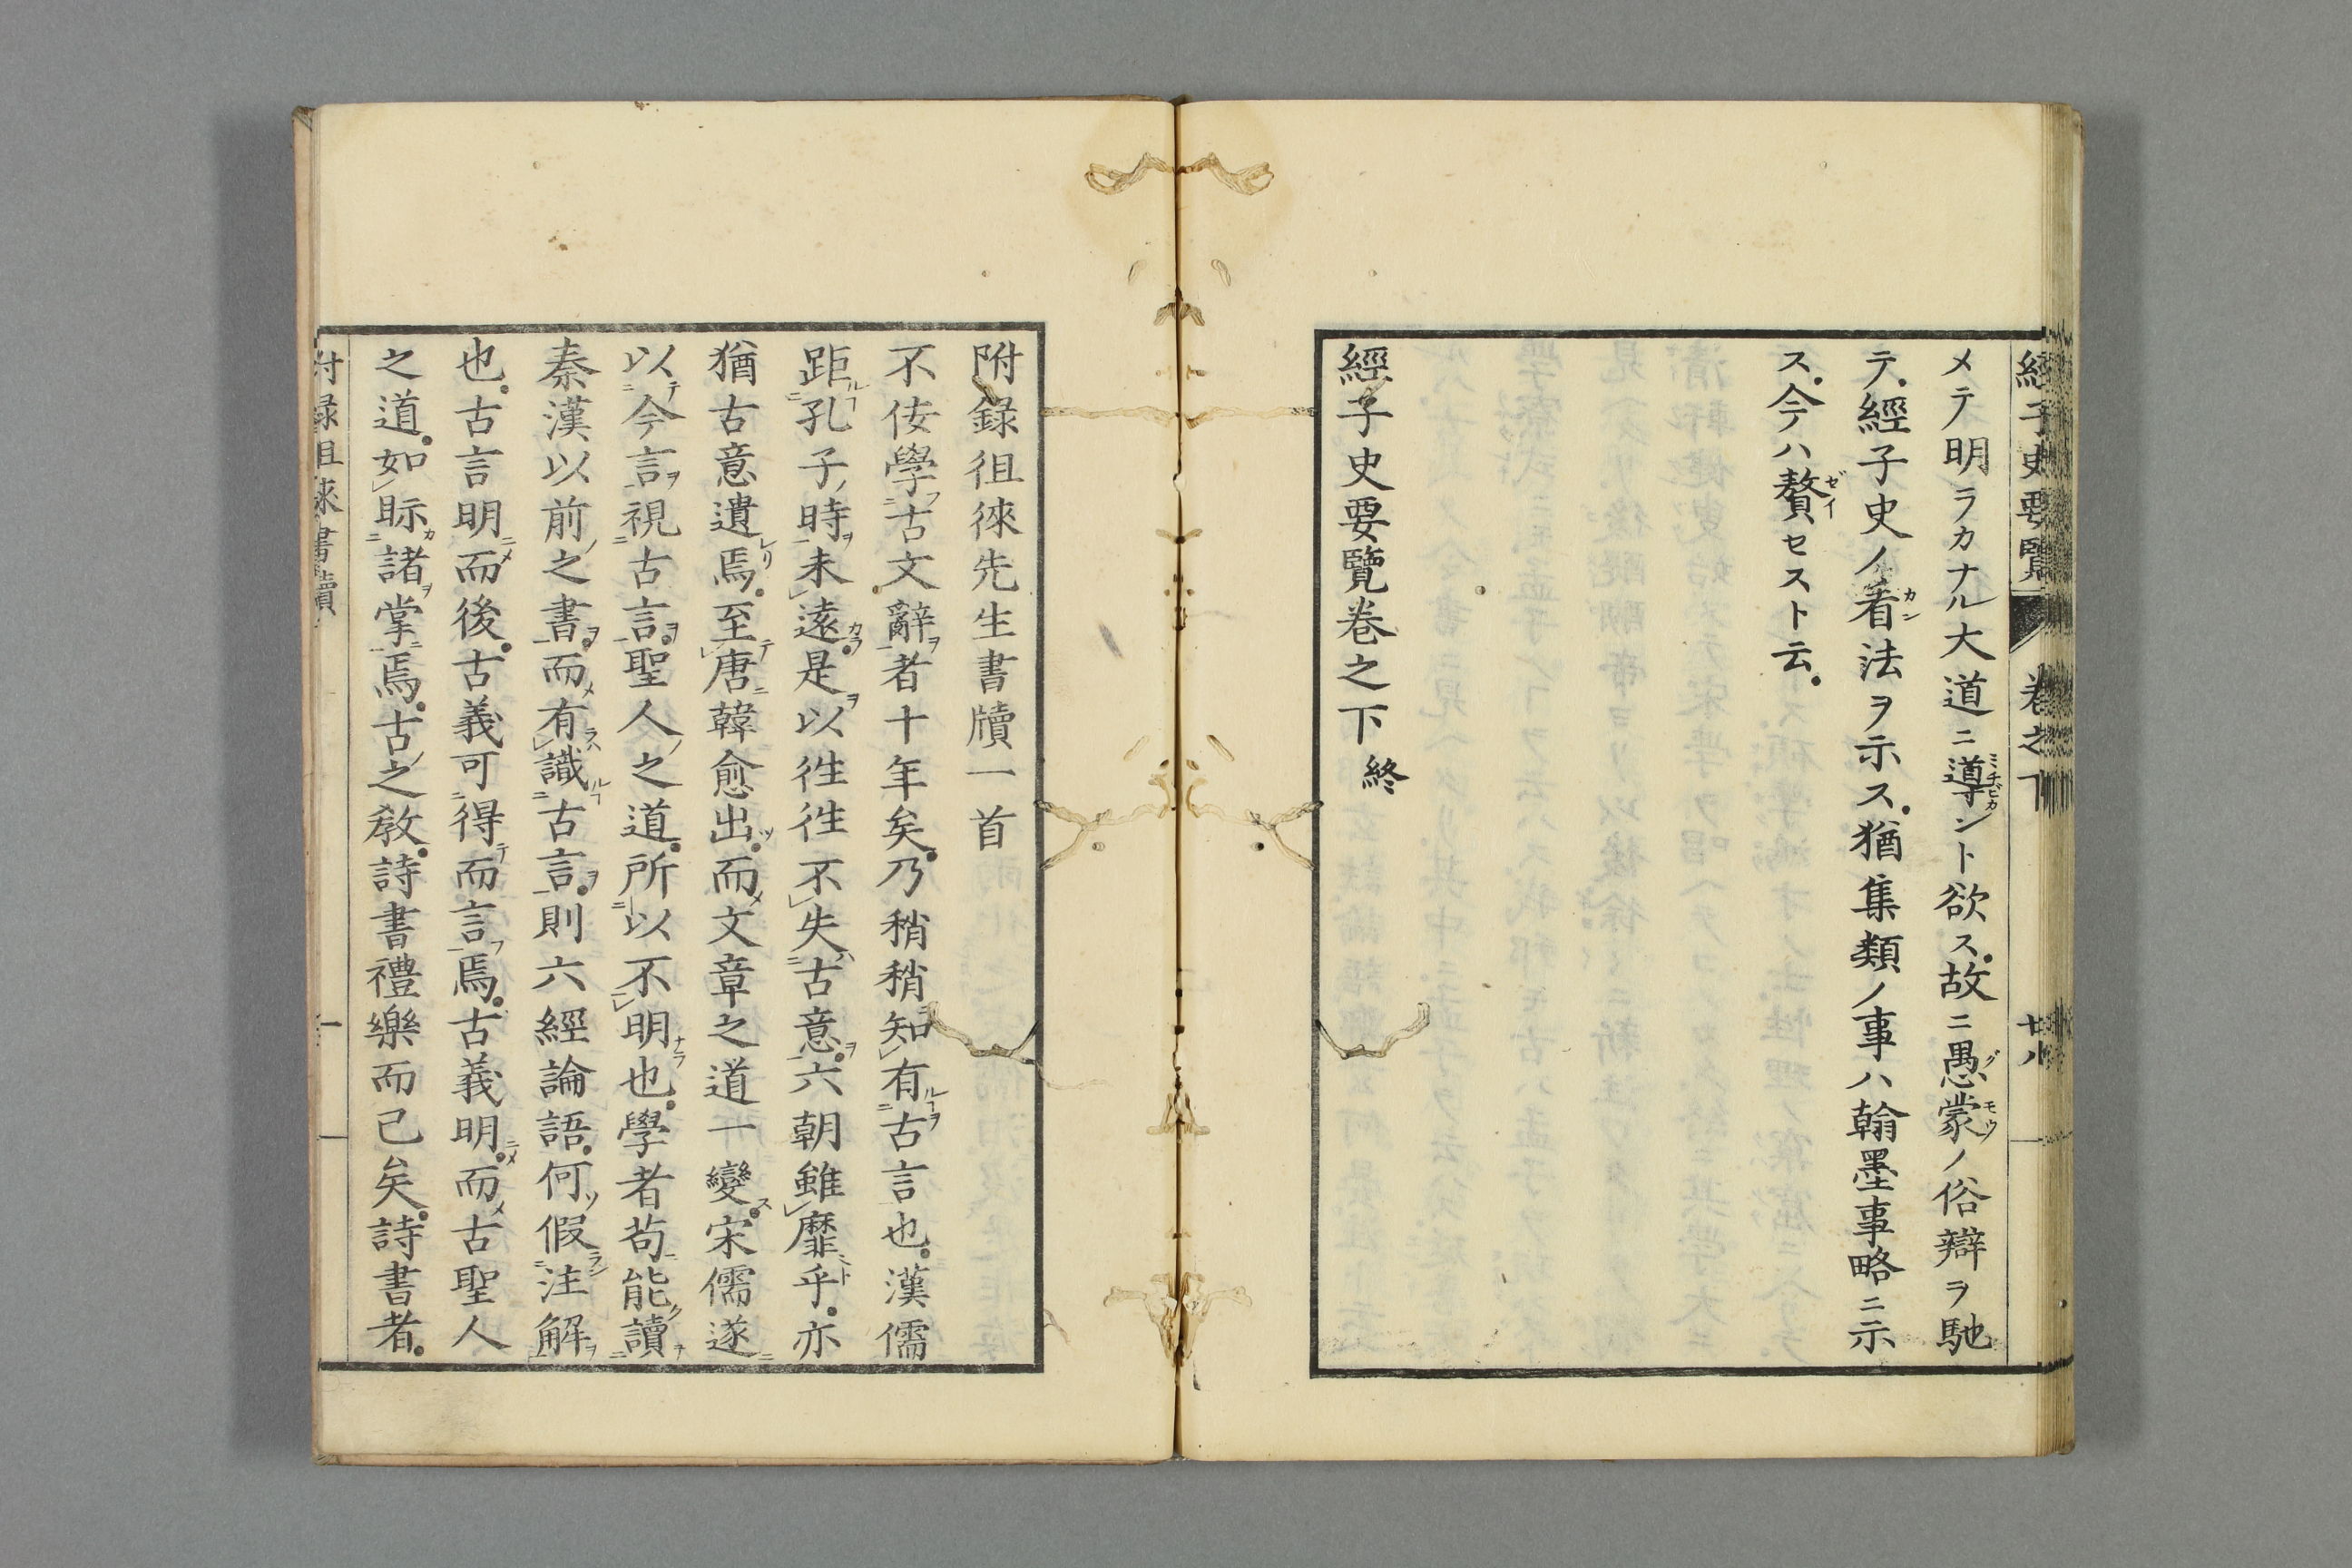 經子史要覽 卷之下 廿八
メテ明ラカナル大道ニ導ンド欲ス。故ニ愚蒙ノ俗辯ヲ馳
テ。經子史ノ看法ヲ示ス。猶集類ノ事ハ翰墨事略ニ示
ス。今ハ贅セスト云。
經子史要覽卷之下終
附錄徂徠先生書牘一首
不佞學古文辭者十年矣。乃稍稍知有古言也。漢儒
距孔子時未遠。是以徃徃不失古意。六朝雖靡乎。亦
猶古意遺焉。至唐韓愈出。而文章之道一變。宋儒遂
以今言視古言。聖人之道。所以不明也。學者苟能讀
秦漢以前之書。而有識古言。則六經論語。何假注解
也。古言明而後。古義可得而言焉。古義明。而古聖人
之道。如眎諸掌焉。古之教。詩書禮樂而已矣。詩書者。
附録徂徠書牘 一